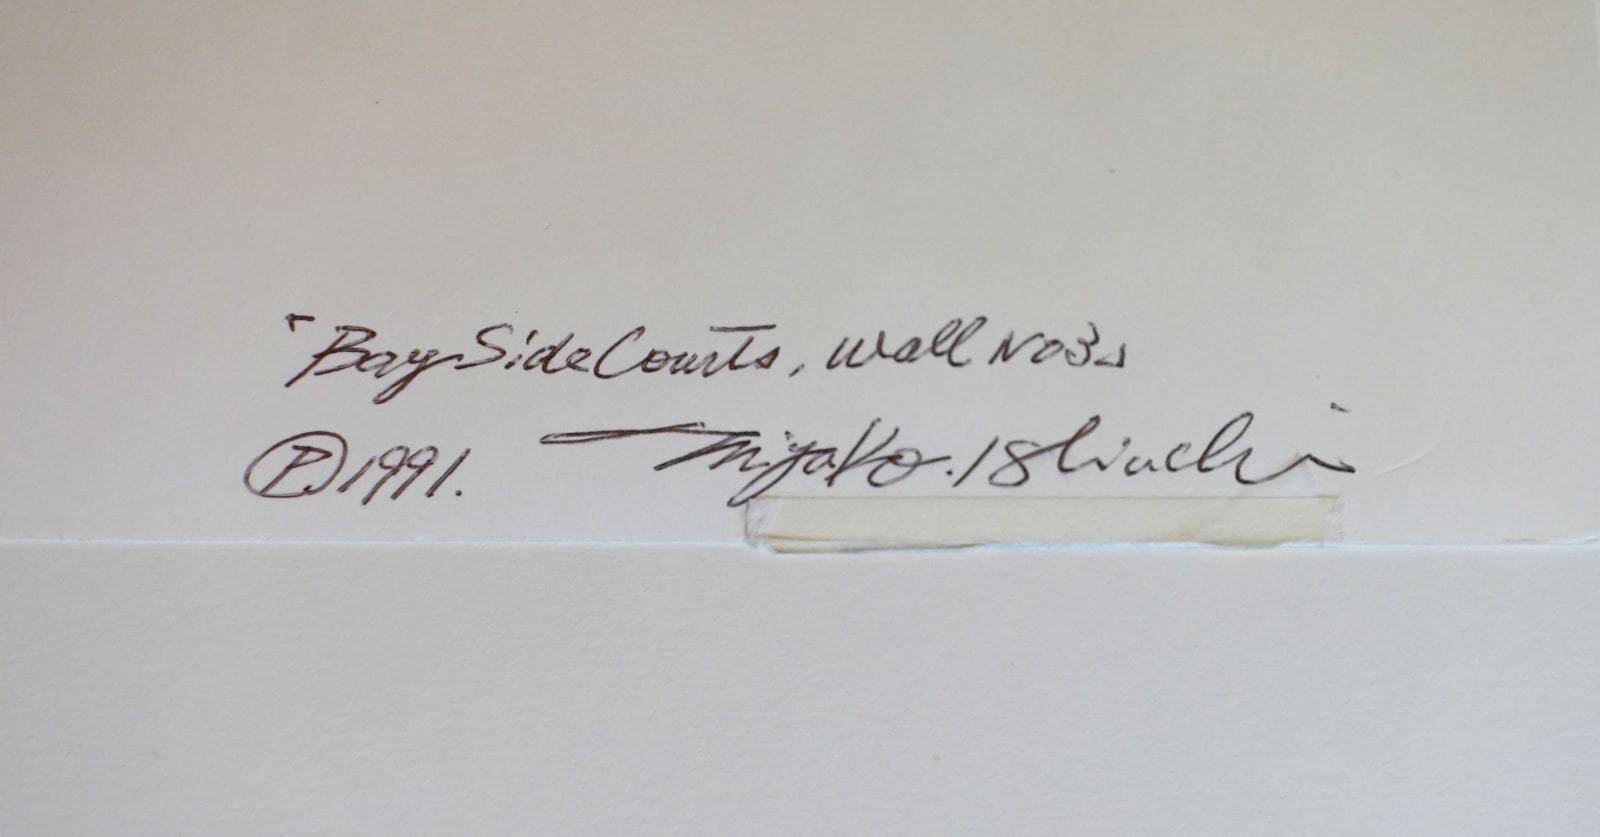 「Bay Side Courts, Wall No3」
Ⓟ1991. Miyako.Ishiuchi